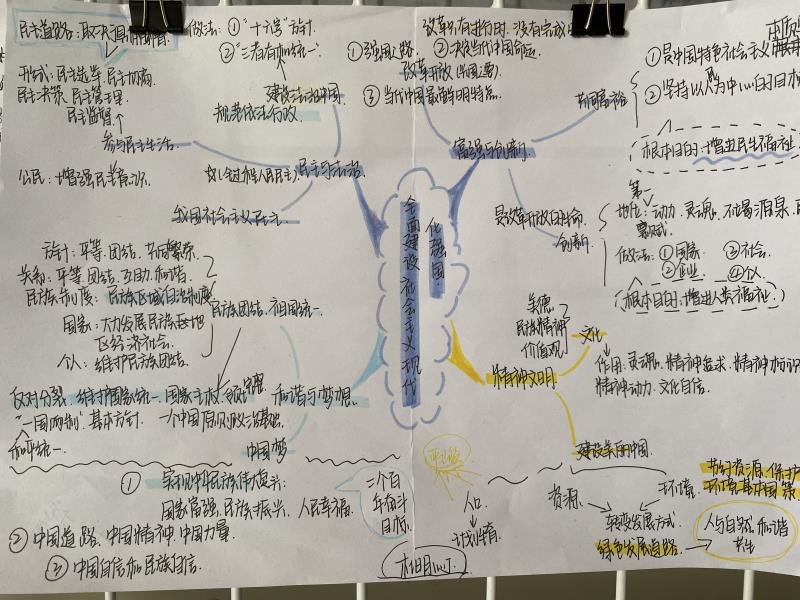 民主道路:
做法:①"十六字"方针
②"三者有机统一"
形式:民主选举 民主协商
民主决策 民主管理
民主监督
建设法治中国
规范依法行政
参与民主生活
民主与法治
公民:增强民主意识
我国社会主义民主
方针:平等、团结、共同繁荣
关系:平等、团结、互助、和谐
民族制度:民族区域自治制度
民族团结、祖国统一
国家:大力发展民族地
区经济社会
个人:维护民族团结
反对分裂,维护国家统一、国家主权、领土完整
"一国两制"基本方针 一个中国原则政治基础
和平统一
和谐与梦想
中国梦
①实现中华民族伟大复兴:
国家富强、民族振兴、人民幸福
②中国道路、中国精神、中国力量
③中国自信和民族自信
二个百
年奋斗
目标
全面建设社会主义现代
化强国
改革只有进行时,没有完成
①强国之路
②决定当代中国命运
改革开放
③当代中国最鲜明特色
富强与创新
共同富裕
①是中国特色社会主义
②坚持以人为中心的
根本目的:增进民生福祉
是改革开放的生命
创新
第一
地位:动力、灵魂、不竭源泉、
禀赋
做法:①国家 ③社会
②企业 ④个人
根本目的:增进人类福祉
美德
民族精神
价值观
文化
精神文明
作用:灵魂、精神追求、精神标识
精神动力、文化自信
建设美丽中国
人口
计划生育
资源
环境
节约资源、保护
环境基本国策
转变发展方式
绿色发展道路
人与自然和谐
共生